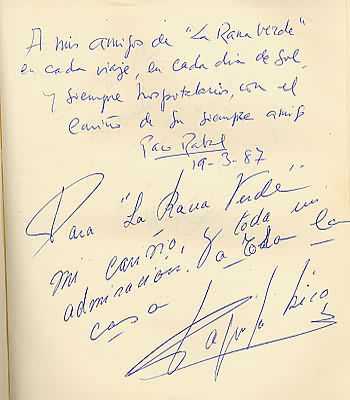 A mis amigos de "La Rana Verde"
en cada viaje, en cada dia de sol,
y siempre hospitalarios, con el
cariño de su siempre amigo
Paco Rabal
19-3-87
Para "La Rana Verde"
mi cariño, y toda mi
admiración. a toda la
casa